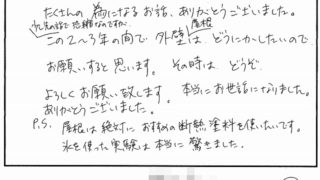 たくさんの為になるお話、ありがとうございました。
先の話で恐縮なのですが、
この2〜3年の間で、外壁、屋根は どうにかしたいので
お願いすると思います。その時は どうぞ
よろしくお願い致します。本当にお世話になりました。
ありがとうございました。
P.S. 屋根は絶対に おすすめの断熱塗料を使いたいです。
氷を使った実験は本当に驚きました。